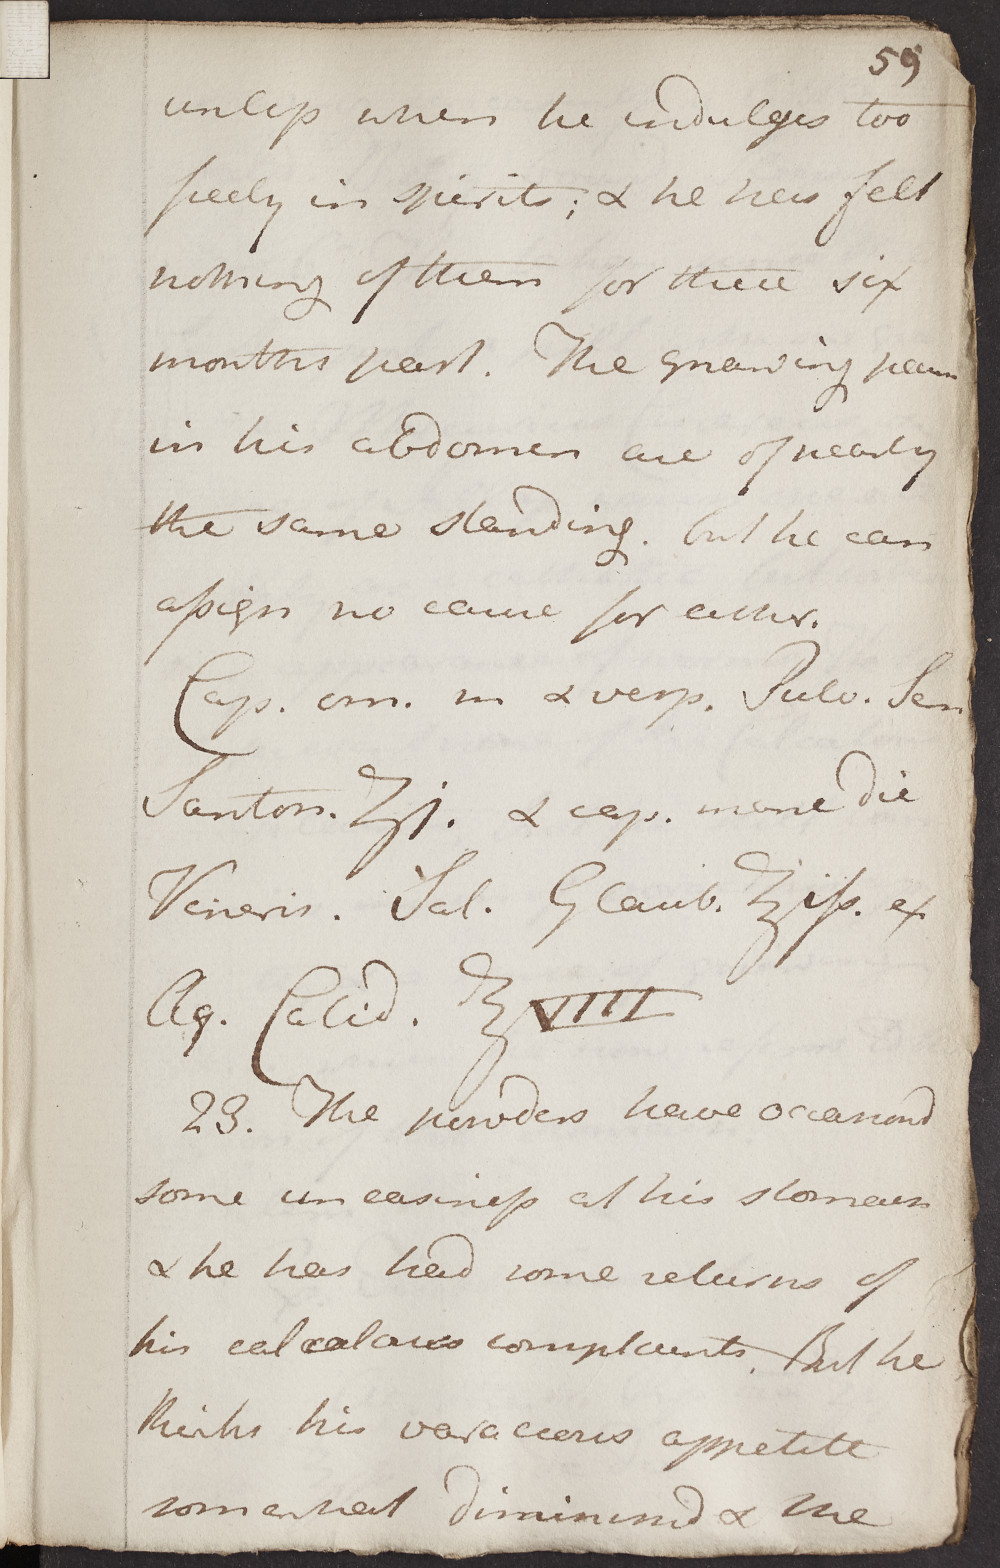 59
unless when he indulges too
freely in spirits; & he has felt
nothing of them for these six
months past. The gnawing pains
in his abdomen are of nearly
the same standing. but he can
assign no cause for either.
Cap. om. m & vesp. Pulv. Sem
Santon. ʒj. & cap. mane die
Veneris. Sal. Glaub. ℥iss. ex
Aq. Calid. ℥VIIII
23. The powders have occasiond
some uneasiness at his stomach
& he has had some returns of
his calcalous complaints. But he
thinks his voracious appetite
somewhat diminishd & the